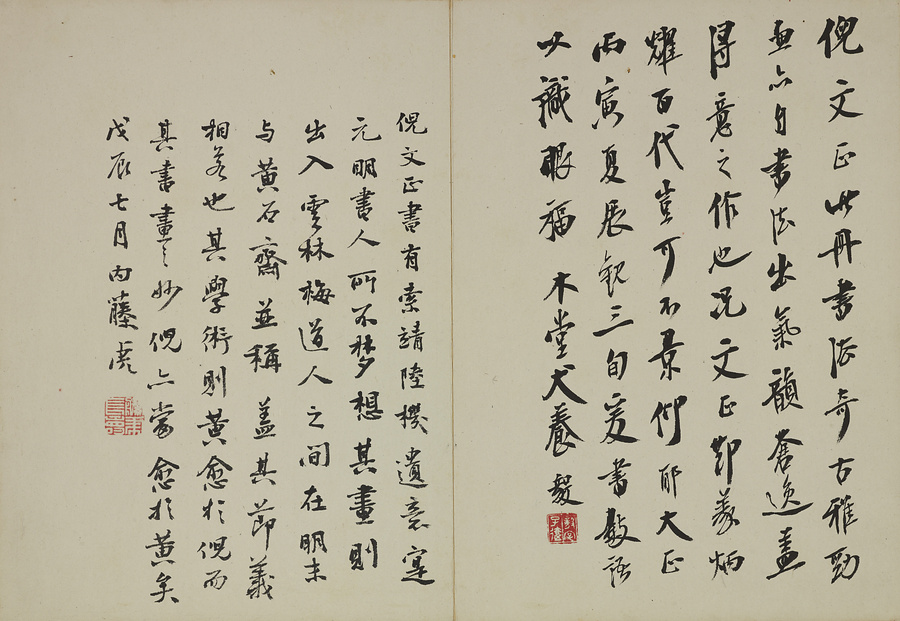 倪文正此冊書法奇古雅勁
画亦自書法出氣韻蒼逸蓋
得意之作也況文正節義炳
耀百代豈可不景仰耶大正
丙寅夏展観三旬爰書数語
以識眼福 木堂犬養毅
倪文正書有索靖陸機遺意寔
元明書人所不夢想其畫則
出入雲林梅道人之間在明末
与黄石齋並稱蓋其節義
相若也其學術則黄愈於倪而
其書畫之妙倪亦當愈於黄矣
戊辰七月内藤虎